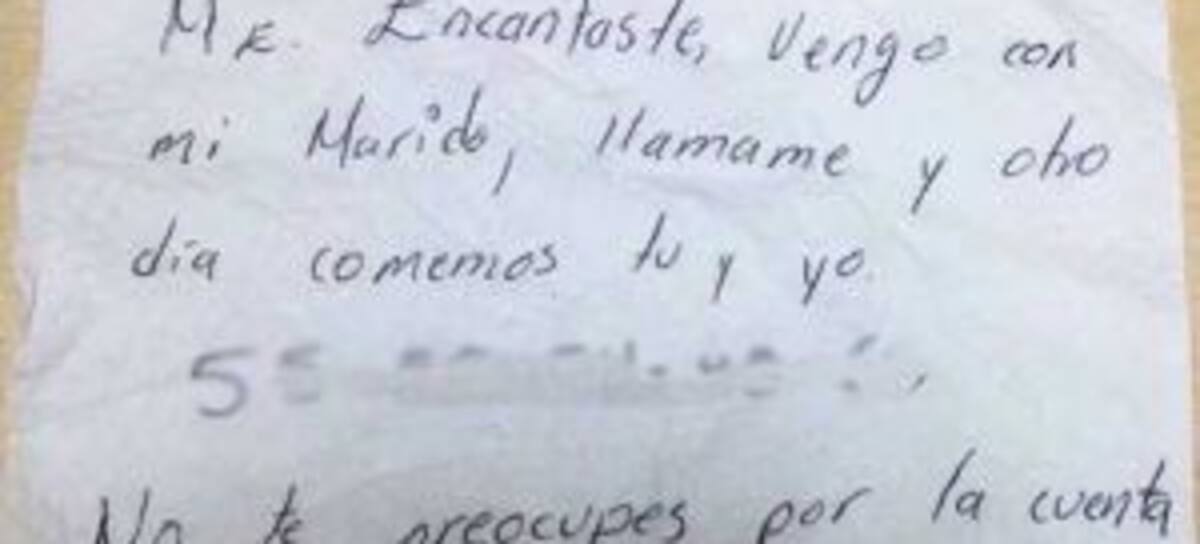 Me. Encantaste, Vengo con
mi Marido, llamame y otro
día comemos tu y yo.
55
No te preocupes por la cuenta